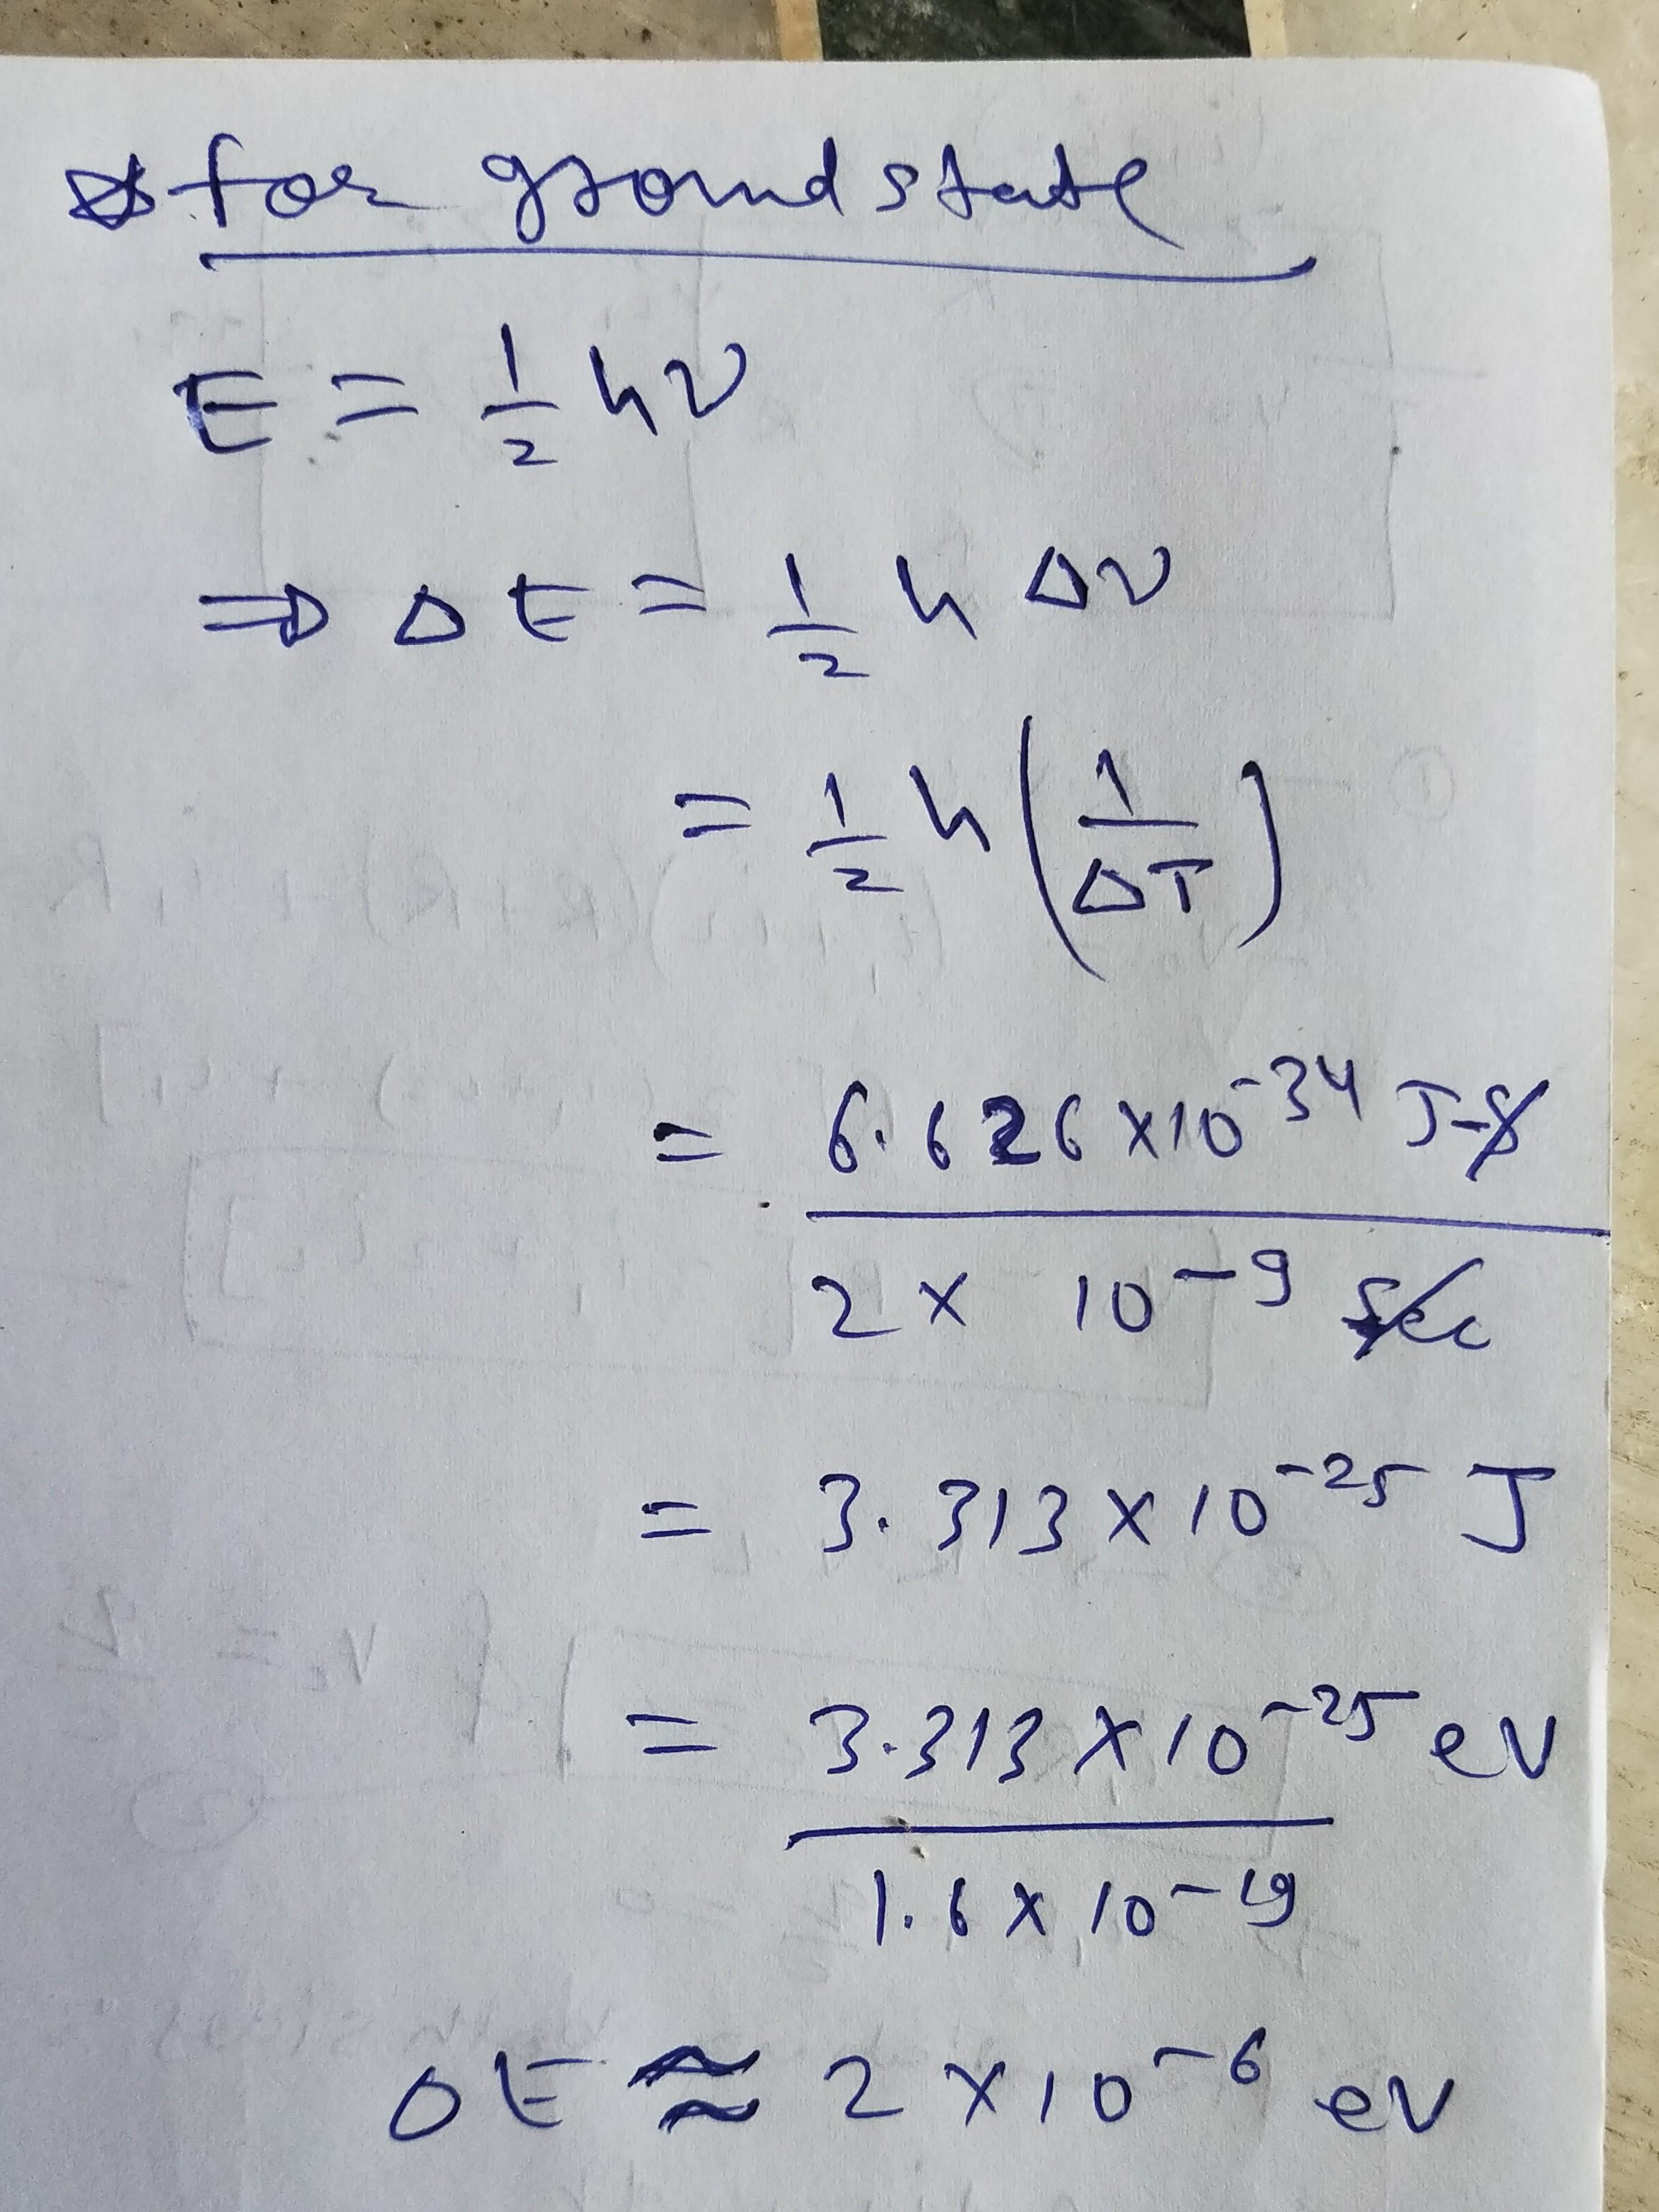 for ground state
E = 1/2 hν
⇒ Δ E = 1/2 h Δν
= 1/2 h (1/ΔT)
= 6.626 × 10^-34 J-s
2 × 10^-9 sec
= 3.313 × 10^-25 J
= 3.313 × 10^-25 eV
1.6 × 10^-19
ΔE ≈ 2 × 10^-6 eV